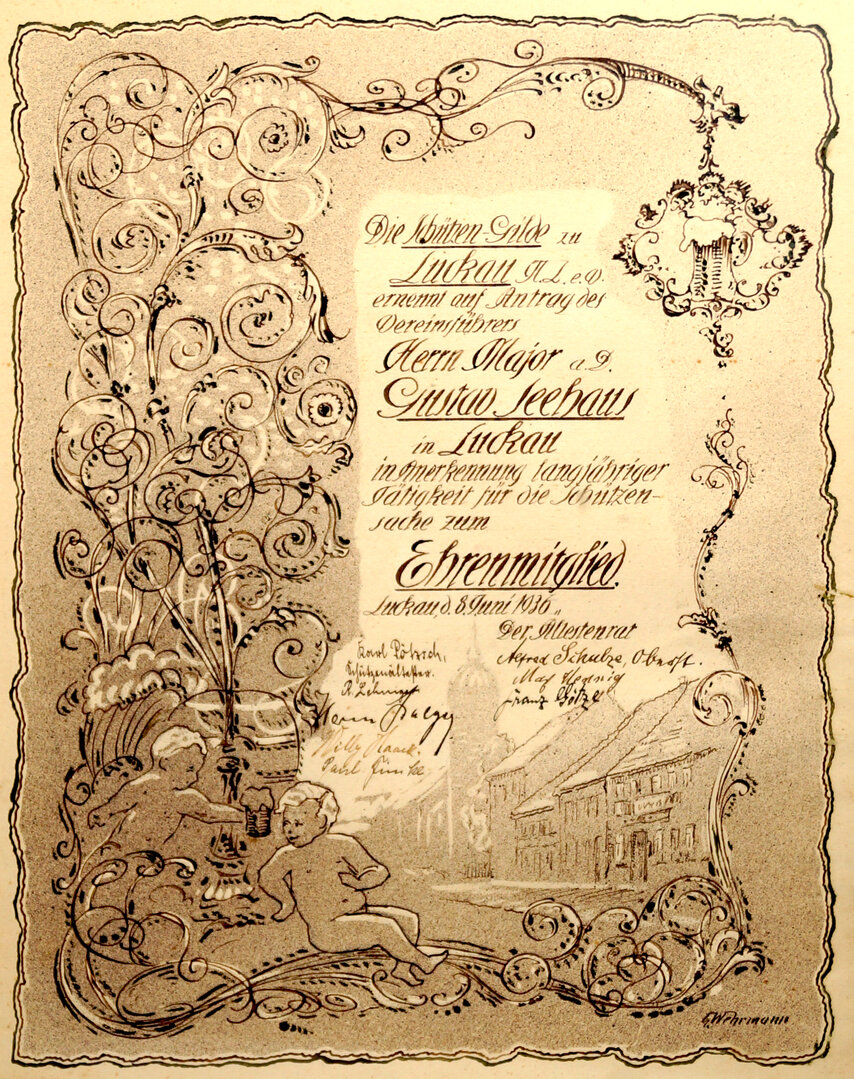 Die Schützen-Gilde zu
Luckau N.L. e.V.
ernennt auf Antrag des
Vereinsführers
Herrn Major a.D.
Gustav Seehaus
in Luckau
in Anerkennung langjähriger
Tätigkeit für die Schützen-
sache zum
Ehrenmitglied.
Luckau, d. 8. Juni 1936
Der Ältestenrat
Karl
Schützenältester.
Alfred Schulze, Oberst.
Max Hennig
Franz Götze
Willy Haack
Paul
G. Wehrmann